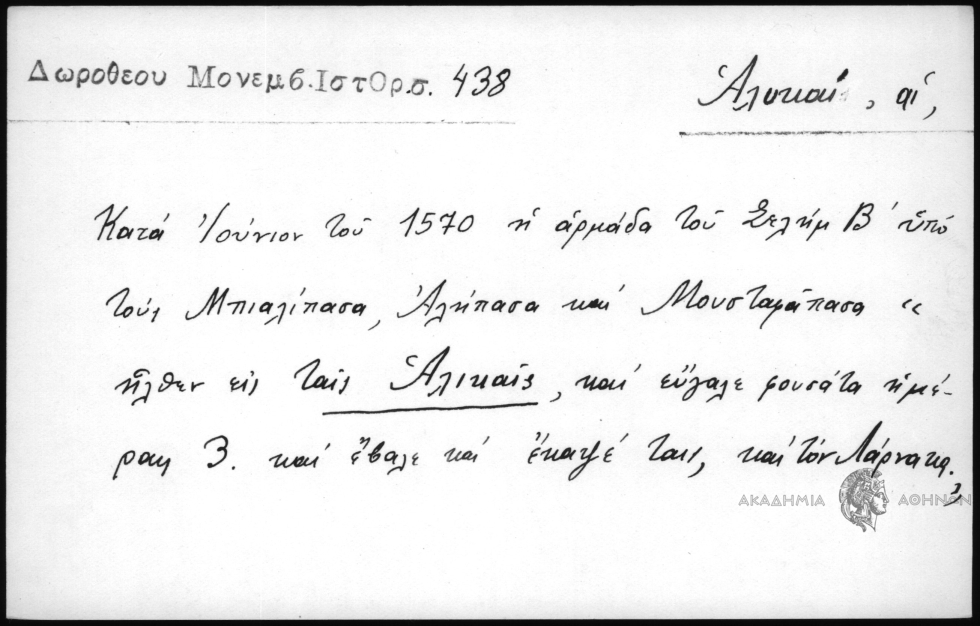 Δωροθεου Μονεμβ.ΙστΟρ.σ. 438
Ἁλυκαί, αἱ,
Κατά Ἰούνιον τοῦ 1570 ἡ ἀρμάδα τοῦ Σελήμ Β΄ ὑπό
τούς Μπιαλίπασα, Ἀλήπασα καί Μουσταφάπασα "
ἦλθεν εἰς ταῖς Ἁλικαῖς, καί εὔγαλε φουσάτα ἡμέ-
ρας 3. καί ἔβαλε καί ἔκαψέ ταις, καί τόν Λάρνακα."
ΑΚΑΔΗΜΙΑ ΑΘΗΝΩΝ